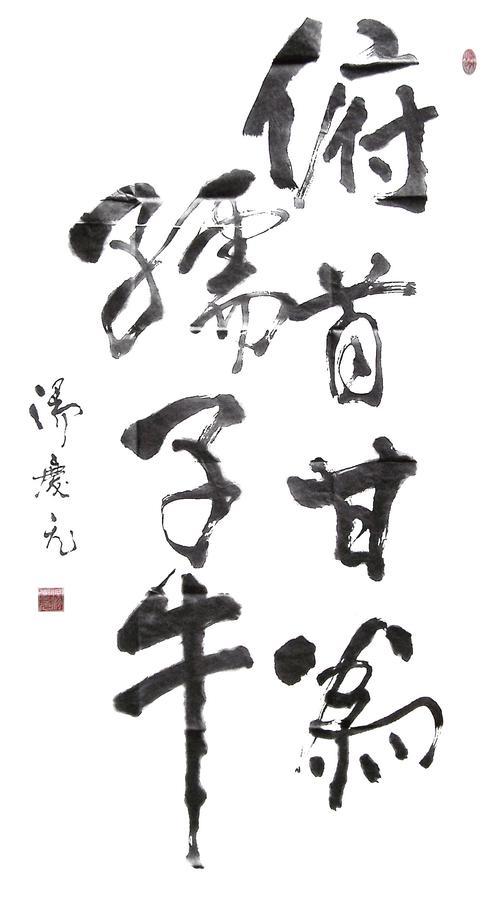 俯首甘為
孺子牛
湯慶元